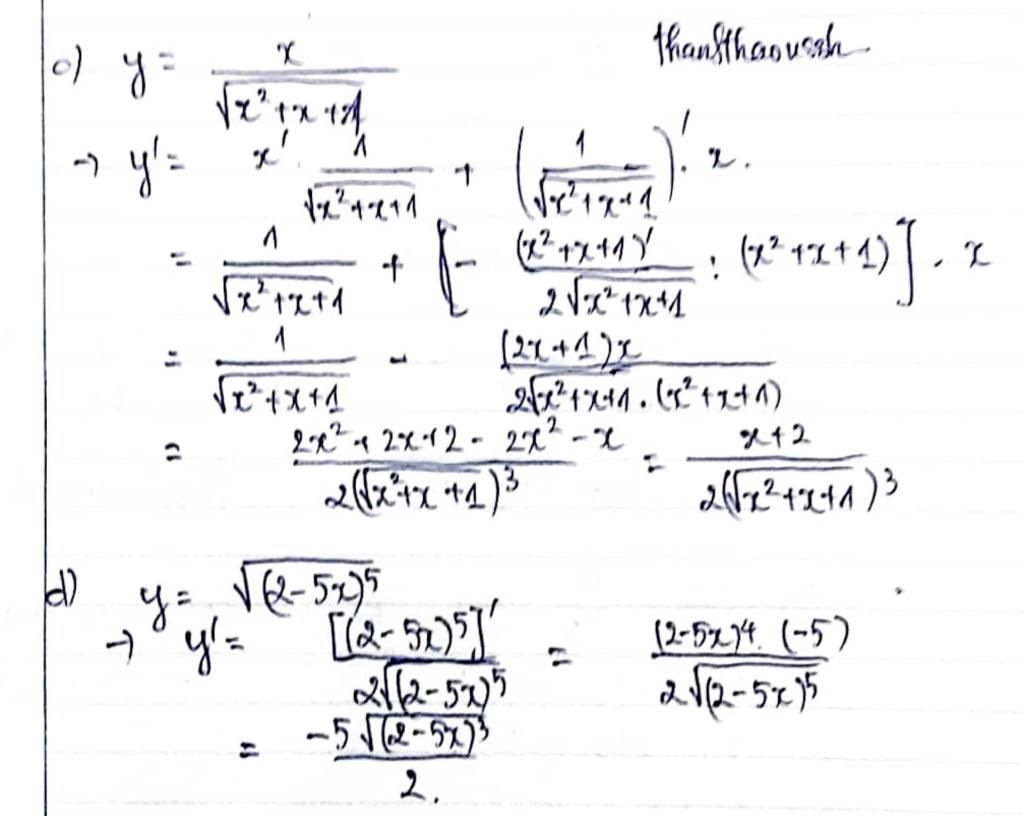 c) y = x / √(x² + x + 1)
thansthaoussh
→ y' = x' · 1 / √(x² + x + 1) + (1 / √(x² + x + 1))' · x.
= 1 / √(x² + x + 1) + [- (x² + x + 1)' / 2√(x² + x + 1) : (x² + x + 1)] . x
= 1 / √(x² + x + 1) - (2x + 1)x / 2√(x² + x + 1) . (x² + x + 1)
= (2x² + 2x + 2 - 2x² - x) / 2(√(x² + x + 1))³ = (x + 2) / 2(√(x² + x + 1))³
d) y = √(2 - 5x)⁵
→ y' = [(2 - 5x)⁵]' / 2√(2 - 5x)⁵ = (2 - 5x)⁴ . (-5) / 2√(2 - 5x)⁵
= -5√(2 - 5x)³ / 2.